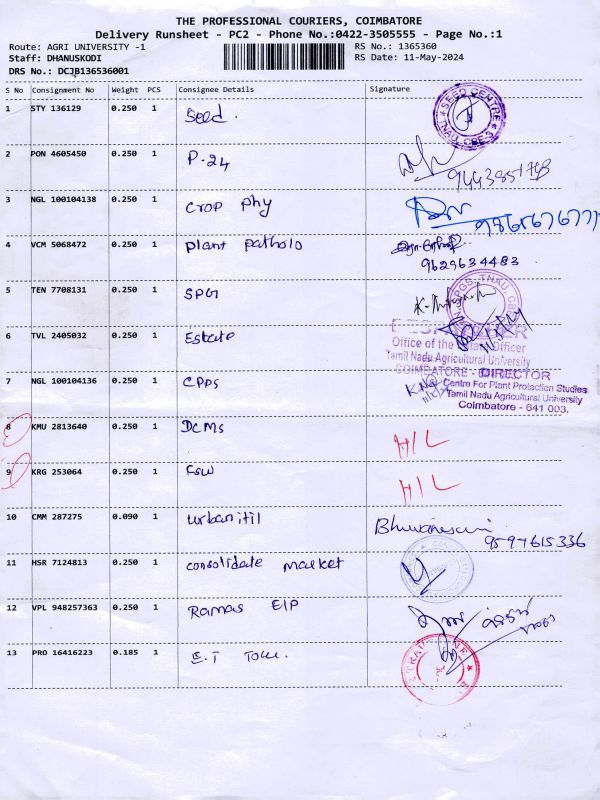 THE PROFESSIONAL COURIERS, COIMBATORE
Delivery Runsheet - PC2 - Phone No.:0422-3505555 - Page No.:1
Route: AGRI UNIVERSITY -1 RS No.: 1365360
Staff: DHANUSKODI RS Date: 11-May-2024
DRS No.: DCJB136536001
S No Consignment No Weight PCS Consignee Details Signature
1 STY 136129 0.250 1 Seed. SEED CENTRE TNAU, CBE-3
2 PON 4605450 0.250 1 P-24
9443851748
3 NGL 100104138 0.250 1 crop phy
4 VCM 5068472 0.250 1 plant patholo
9629634483
5 TEN 7708131 0.250 1 SPG
6 TVL 2405032 0.250 1 Estate
Office of the Estate Officer
Tamil Nadu Agricultural University
COIMBATORE - DIRECTOR
7 NGL 100104136 0.250 1 CPPS
Centre For Plant Protection Studies
Tamil Nadu Agricultural University
Coimbatore - 641 003.
8 KMU 2813640 0.250 1 DCMS H/L
9 KRG 253064 0.250 1 CSW H/L
10 CMM 287275 0.090 1 urbanitil Bhuvaneswari
9597615336
11 HSR 7124813 0.250 1 consolidate market
12 VPL 948257363 0.250 1 Ramas EIP
13 PRO 16416223 0.185 1 E.T Tow.